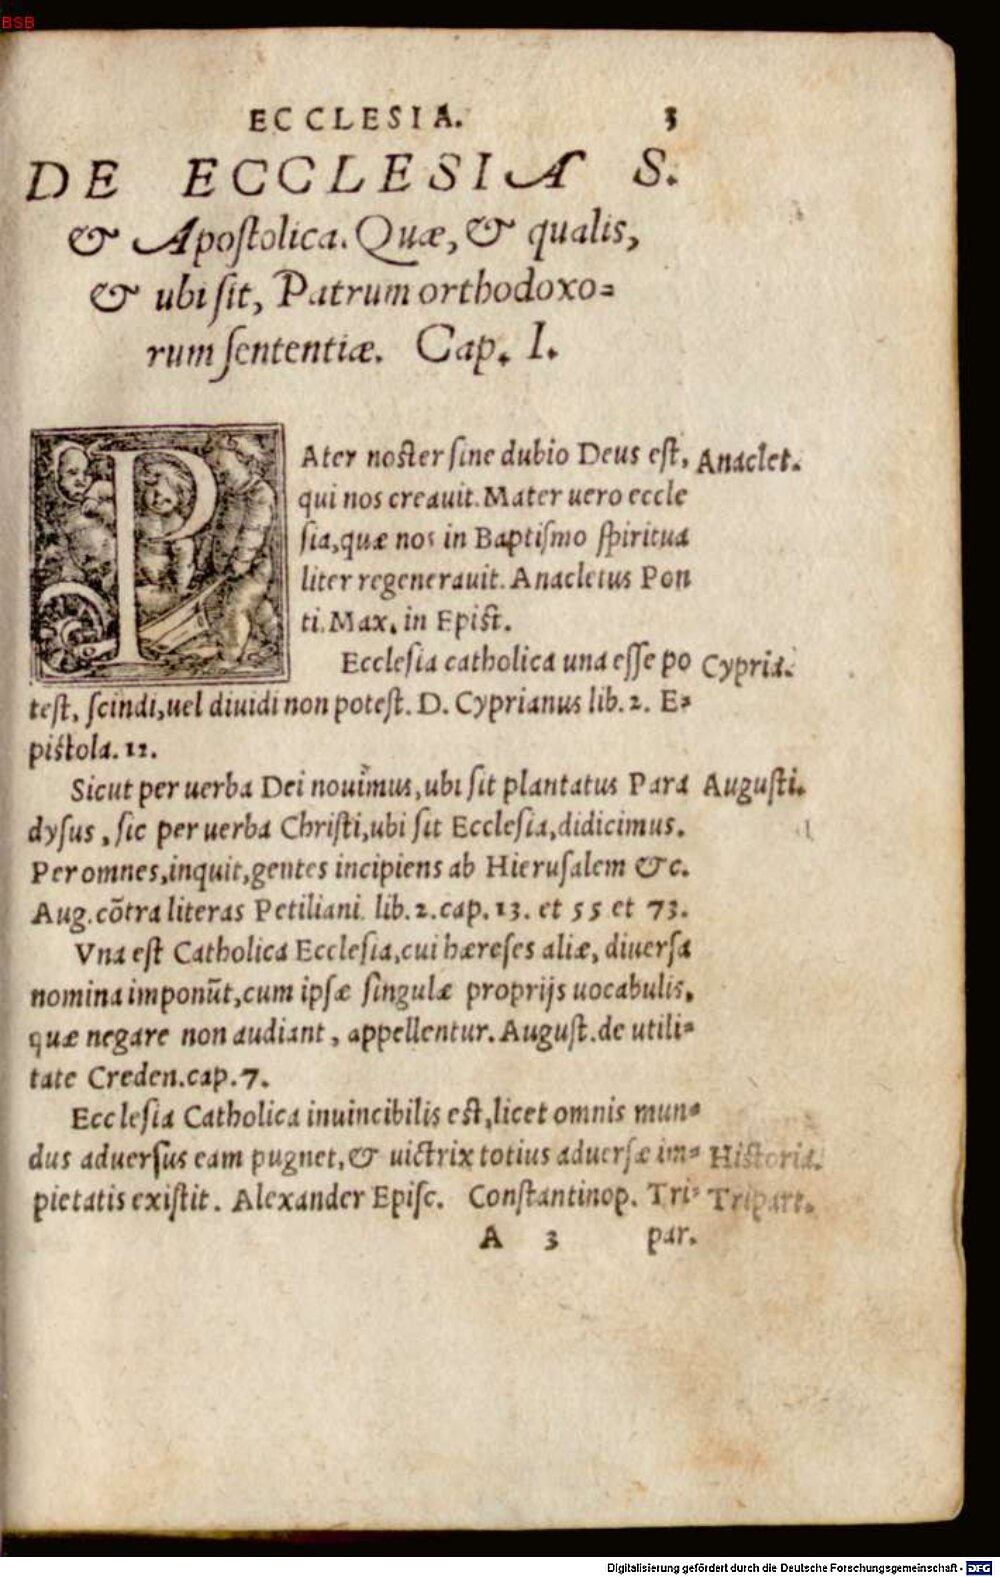 BSB
ECCLESIA. 3
DE ECCLESIA S.
& Apostolica. Quæ, & qualis,
& ubi sit, Patrum orthodoxo=
rum sententiæ. Cap. I.
PAter noster sine dubio Deus est, Anaclet.
qui nos creauit. Mater uero eccle
sia, quæ nos in Baptismo spiritua
liter regenerauit. Anacletus Pon
ti. Max. in Epist.
Ecclesia catholica una esse po Cypria.
test, scindi, uel diuidi non potest. D. Cyprianus lib. 2. E=
pistola. 11.
Sicut per uerba Dei nouimus, ubi sit plantatus Para Augusti.
dysus, sic per uerba Christi, ubi sit Ecclesia, didicimus.
Per omnes, inquit, gentes incipiens ab Hierusalem &c.
Aug. cõtra literas Petiliani lib. 2. cap. 13. et 55 et 73.
Vna est Catholica Ecclesia, cui hæreses aliæ, diuersa
nomina imponũt, cum ipsæ singulæ proprijs uocabulis,
quæ negare non audiant, appellentur. August. de utili=
tate Creden. cap. 7.
Ecclesia Catholica inuincibilis est, licet omnis mun=
dus aduersus eam pugnet, & uictrix totius aduersæ im= Historia.
pietatis existit. Alexander Episc. Constantinop. Tri= Tripart.
A 3 par.
Digitalisierung gefördert durch die Deutsche Forschungsgemeinschaft - DFG